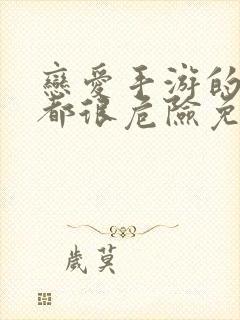 戀愛手游的
都很危險免
歲莫